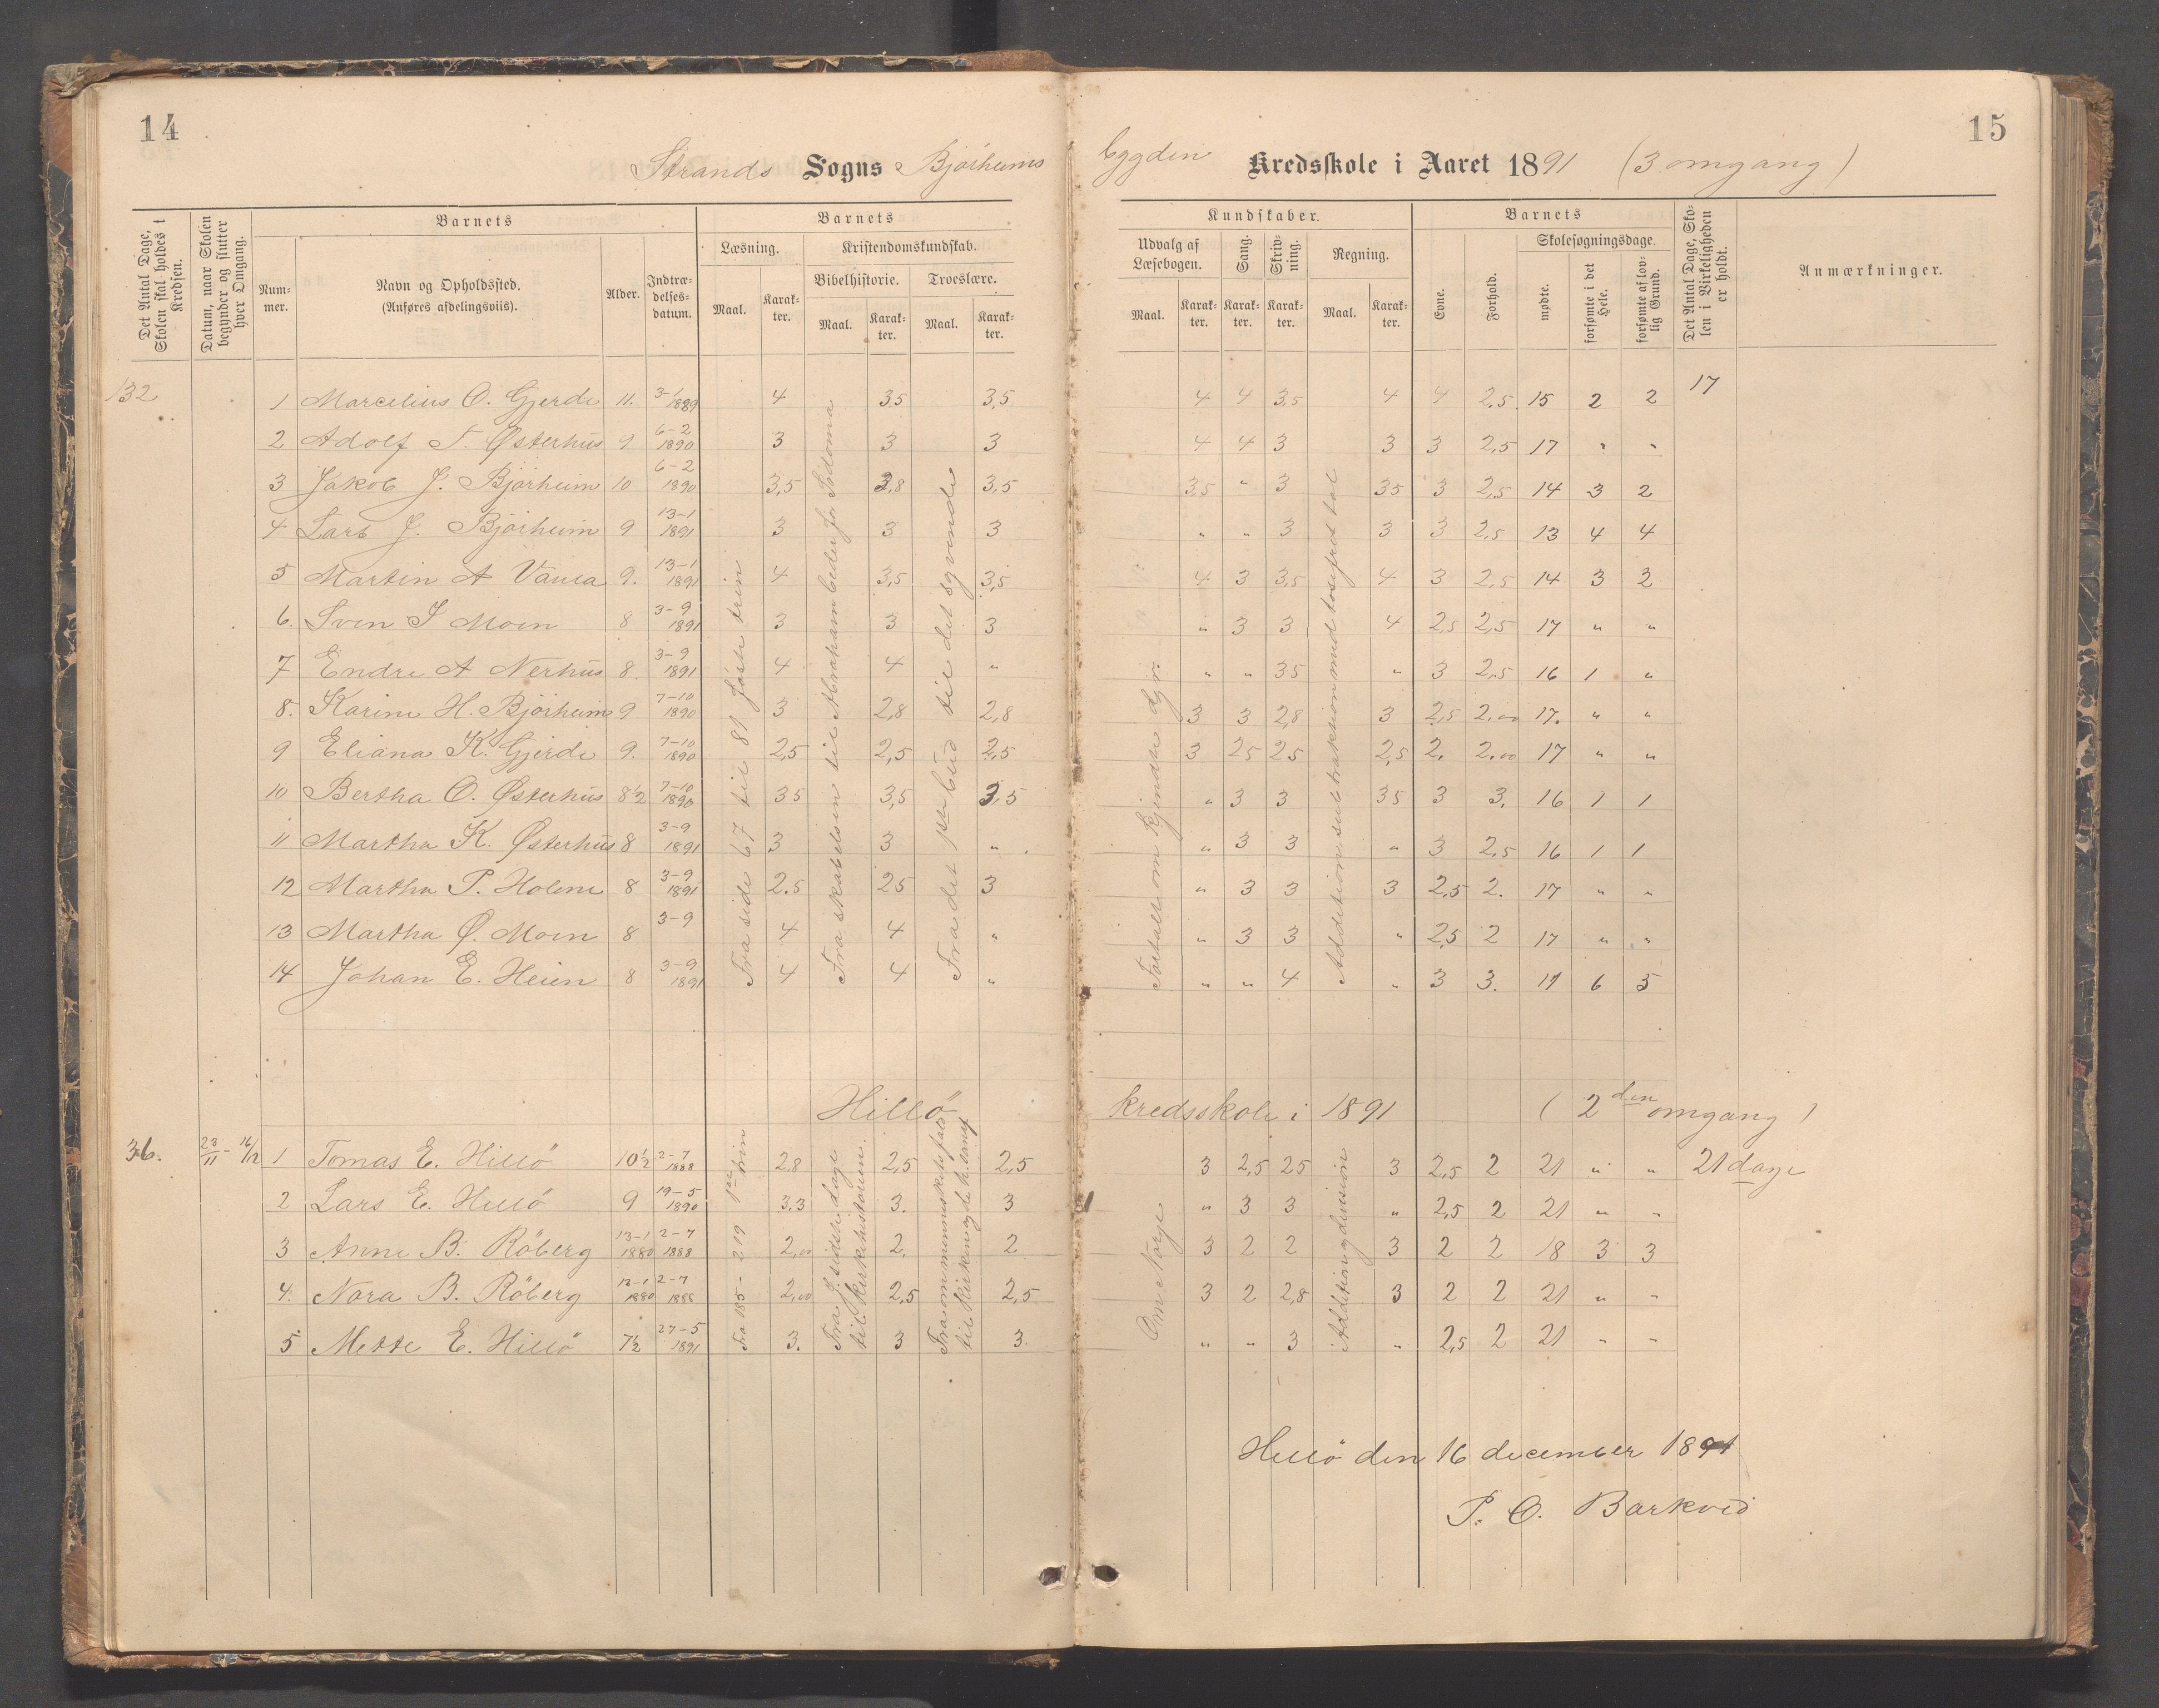 14
Strands Sogns Bjørheims
bygden Kredsskole i Aaret 1891 (3 omgang)
15
Det Antal Dage, Skolen skal holdes i Kredsen.
Datum, naar Skolen begynder og slutter hver Omgang.
Barnets
Nummer.
Navn og Opholdssted.
(Anføres afdelingsviis).
Alder.
Indtrædelsesdatum.
Barnets
Læsning.
Kristendomskundskab.
Bibelhistorie.
Troeslære.
Maal. Karakter. Maal. Karakter. Maal. Karakter.
Kundskaber.
Udvalg af Læsebogen.
Sang.
Skrivning.
Regning.
Maal. Karakter. Karakter. Karakter. Maal. Karakter.
Barnets
Evne.
Forhold.
Skolesøgningsdage.
mødte.
forsømte i det Hele.
forsømte af lovlig Grund.
Det Antal Dage, Skolen i Virkeligheden er holdt.
Anmærkninger.
132 1 Marcelius O. Gjerde 11. 3-1 1889 4 3,5 3,5 4 4 3,5 4 4 2,5 15 2 2 17
2 Adolf T. Østerhus 9 6-2 1890 3 3 3 4 4 3 3 3 2,5 17 " "
3 Jakob J. Bjørheim 10 6-2 1890 3,5 2,8 3,5 3,5 " 3 3,5 3 2,5 14 3 2
4 Lars J. Bjørheim 9 13-1 1891 3 3 3 " " 3 3 3 2,5 13 4 4
5 Martin A Vaula 9. 13-1 1891 4 3,5 3,5 4 3 3,5 4 3 2,5 14 3 2
6. Sven I Moen 8 3-9 1891 3 3 3 " 3 3 4 2,5 2,5 17 " "
7 Endre A Nerhus 8. 3-9 1891 4 4 " " " 3,5 " 3 2,5 16 1 "
8. Karine H. Bjørheim 9 7-10 1890 3 2,8 2,8 3 3 2,8 3 2,5 2,00 17. " "
9 Eliana K. Gjerde 9. 7-10 1890 2,5 2,5 2,5 3 2,5 2,5 2,5 2. 2,00 17 " "
10 Bertha O. Østerhus 8 1/2 7-10 1890 3,5 3,5 3,5 " 3 3 3,5 3 3. 16 1 1
11 Martha K. Østerhus 8 3-9 1891 3 3 " " 3 3 " 3 2,5 16 1 1
12 Martha P. Holene 8 3-9 1891 2.5 2,5 3 " 3 3 3 2,5 2. 17 " "
13 Martha Ø. Moen 8 3-9 4 4 " " 3 3 " 2,5 2 17 " "
14 Johan E. Heien 8 3-9 1891 4 4 " " " 4 " 3 3. 11 6 5
Fra side 67 til 81 første trin
Fra skabelsen til Abraham beder for Sodoma
Fra det 1ste bud til det syvende
Fortalt om kjendte dyr.
Addition subtraksion med tosifret tal
Hillö kredsskole i 1891 (2den omgang)
36. 23/11 - 16/12 1 Tomas E. Hillö 10 1/2 2-7 1888 2,8 2,5 2,5 3 2,5 2,5 3 2,5 2 21 " " 21 dage
2 Lars E. Hillö 9 19-5 1890 3.3 3. 3 " 3 3 " 2,5 2 21 " "
3 Anne B. Röberg 13-1 1880 2-7 1888 2,00 2. 2 3 2 2 3 2 2 18 3 3
4. Nora B. Röberg 13-1 1880 2-7 1888 2,00 2,5 2,5 3 2 2,8 3 2 2 21 " "
5 Mette E. Hillö 7 1/2 27-5 1891 3. 3 3. " " 3 " 2,5 2 21 " "
Fra 185 - 219 1ste trin
Fra J. sidste dage til kirkehistorien.
Fra om menneskets fald til
Om Norge
Addition og division
Hillö den 16 december 1891
P. O. Barkved